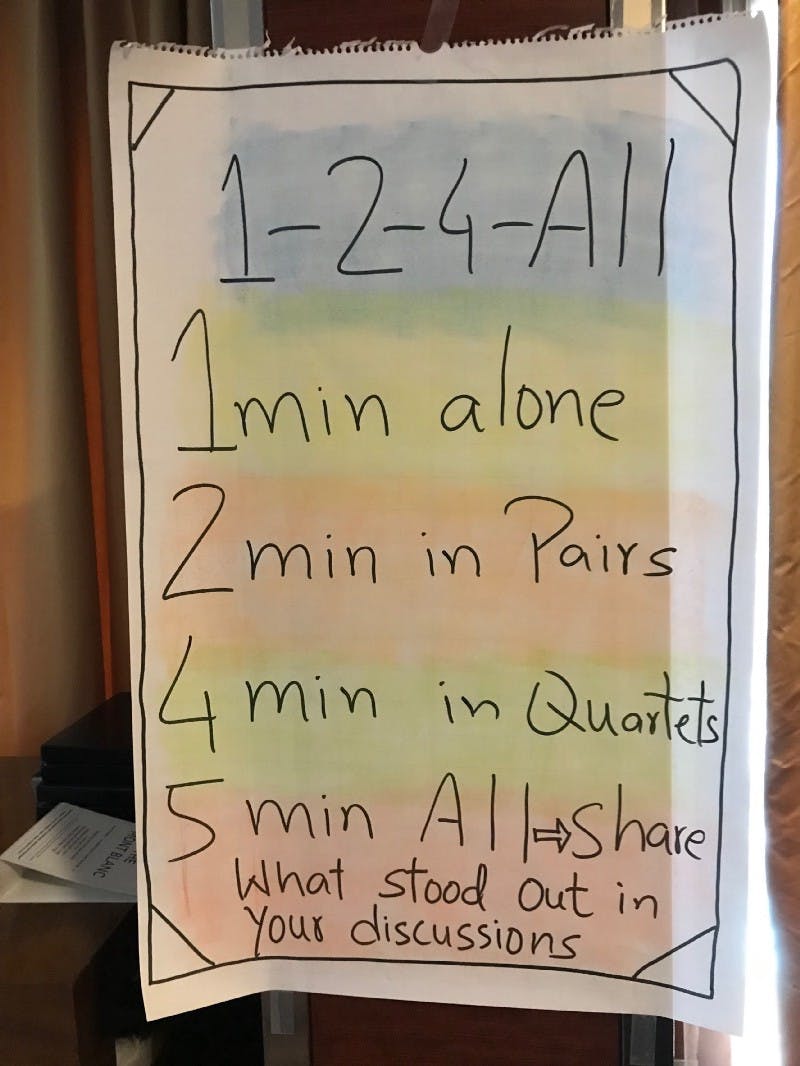 1-2-4-All
1min alone
2 min in Pairs
4 min in Quartets
5 min All⇨Share
What stood out in
your discussions
MONT BLANC